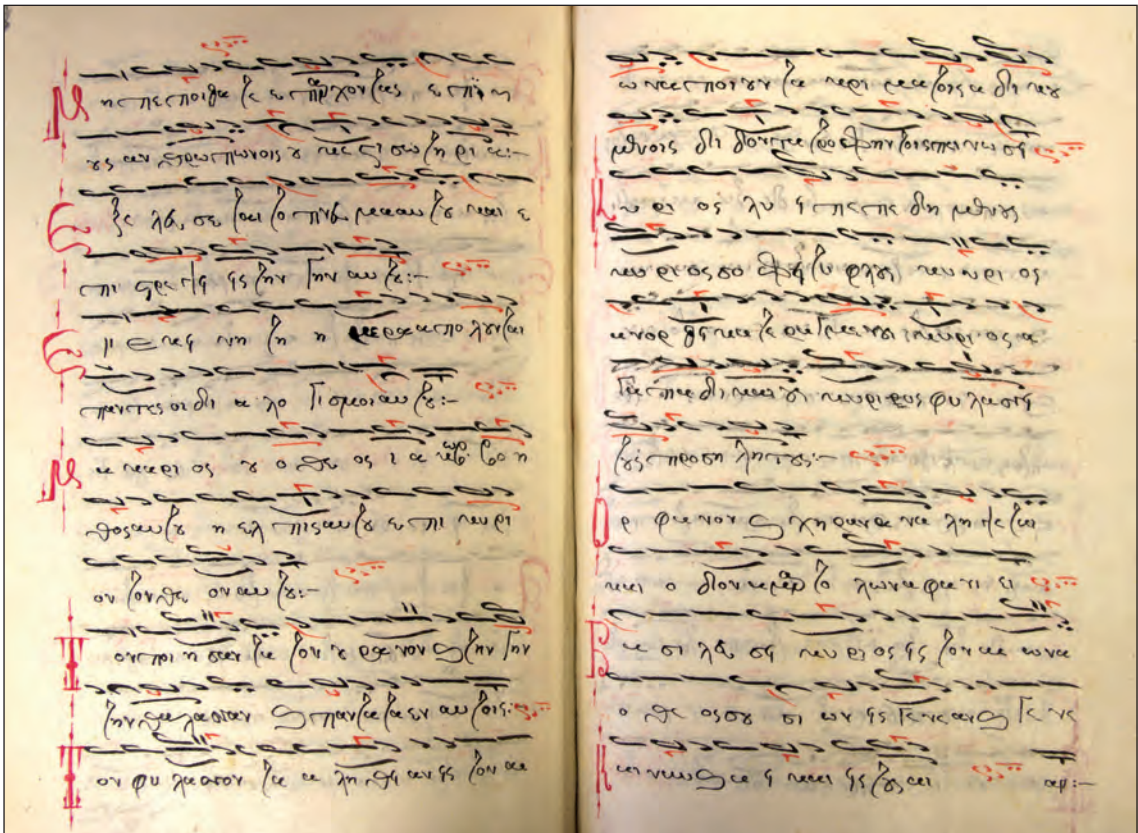 Μη πεποιθατε επ αρχοντας, επι υι
ους ανθρωπων οις ουκ εστι σωτηρια:-
Εξελευσεται το πνευμα αυτου και ε
πιστρεψει εις την γην αυτου:-
Εν εκεινη τη ημερα απολουνται
παντες οι διαλογισμοι αυτου:-
Μακαριος ου ο θεος ιακωβ βοη
θος αυτου η ελπις αυτου επι κυρι
ον τον θεον αυτου:-
Τον ποιησαντα τον ουρανον ϗ την γην
την θαλασσαν ϗ παντα τα εν αυτοις:-
Τον φυλασσοντα αληθειαν εις τον αι
ωνα ποιουντα κριμα τοις αδικου
μενοις διδοντα τροφην τοις πεινωσι
Κυριος λυει πεπεδημενους
κυριος σοφει τυφλους κυριος
ανορθει κατερραγμενους κυριος α
γαπα δικαιους κυριος φυλασσει
τους προσηλητους:-
Ορφανον ϗ χηραν αναληψεται
και οδον αμαρτωλων αφανιει
Βασιλευσει κυριος εις τον αιωνα
ο θεος σου σιων εις γενεαν ϗ γενε
Και νυν ϗ αει και εις τους αι